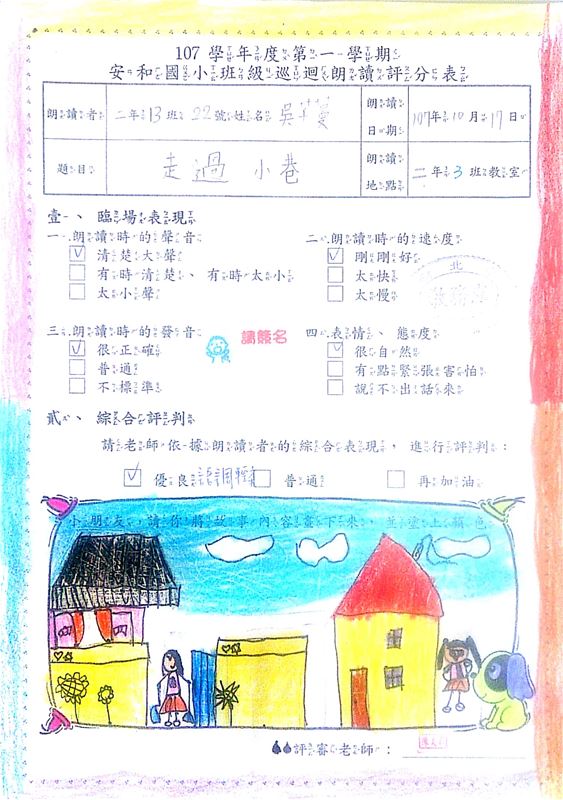 107學年度第一學期
安和國小班級巡迴朗讀評分表
朗讀者 二年13班22號姓名 吳 蔓 朗讀日期 107年10月17日
題目 走過小巷 朗讀地點 二年3班教室
壹、臨場表現
一.朗讀時的聲音 二.朗讀時的速度
清楚大聲 剛剛好
有時清楚、有時太小 太快
太小聲 太慢
三.朗讀時的發音 請簽名 四.表情、態度
很正確 很自然
普通 有點緊張害怕
不標準 說不出話來
貳、綜合評判
請老師依據朗讀者的綜合表現,進行評判:
優良 普通 再加油
小朋友,請你將故事內容畫下來,並塗上顏色
評審老師: